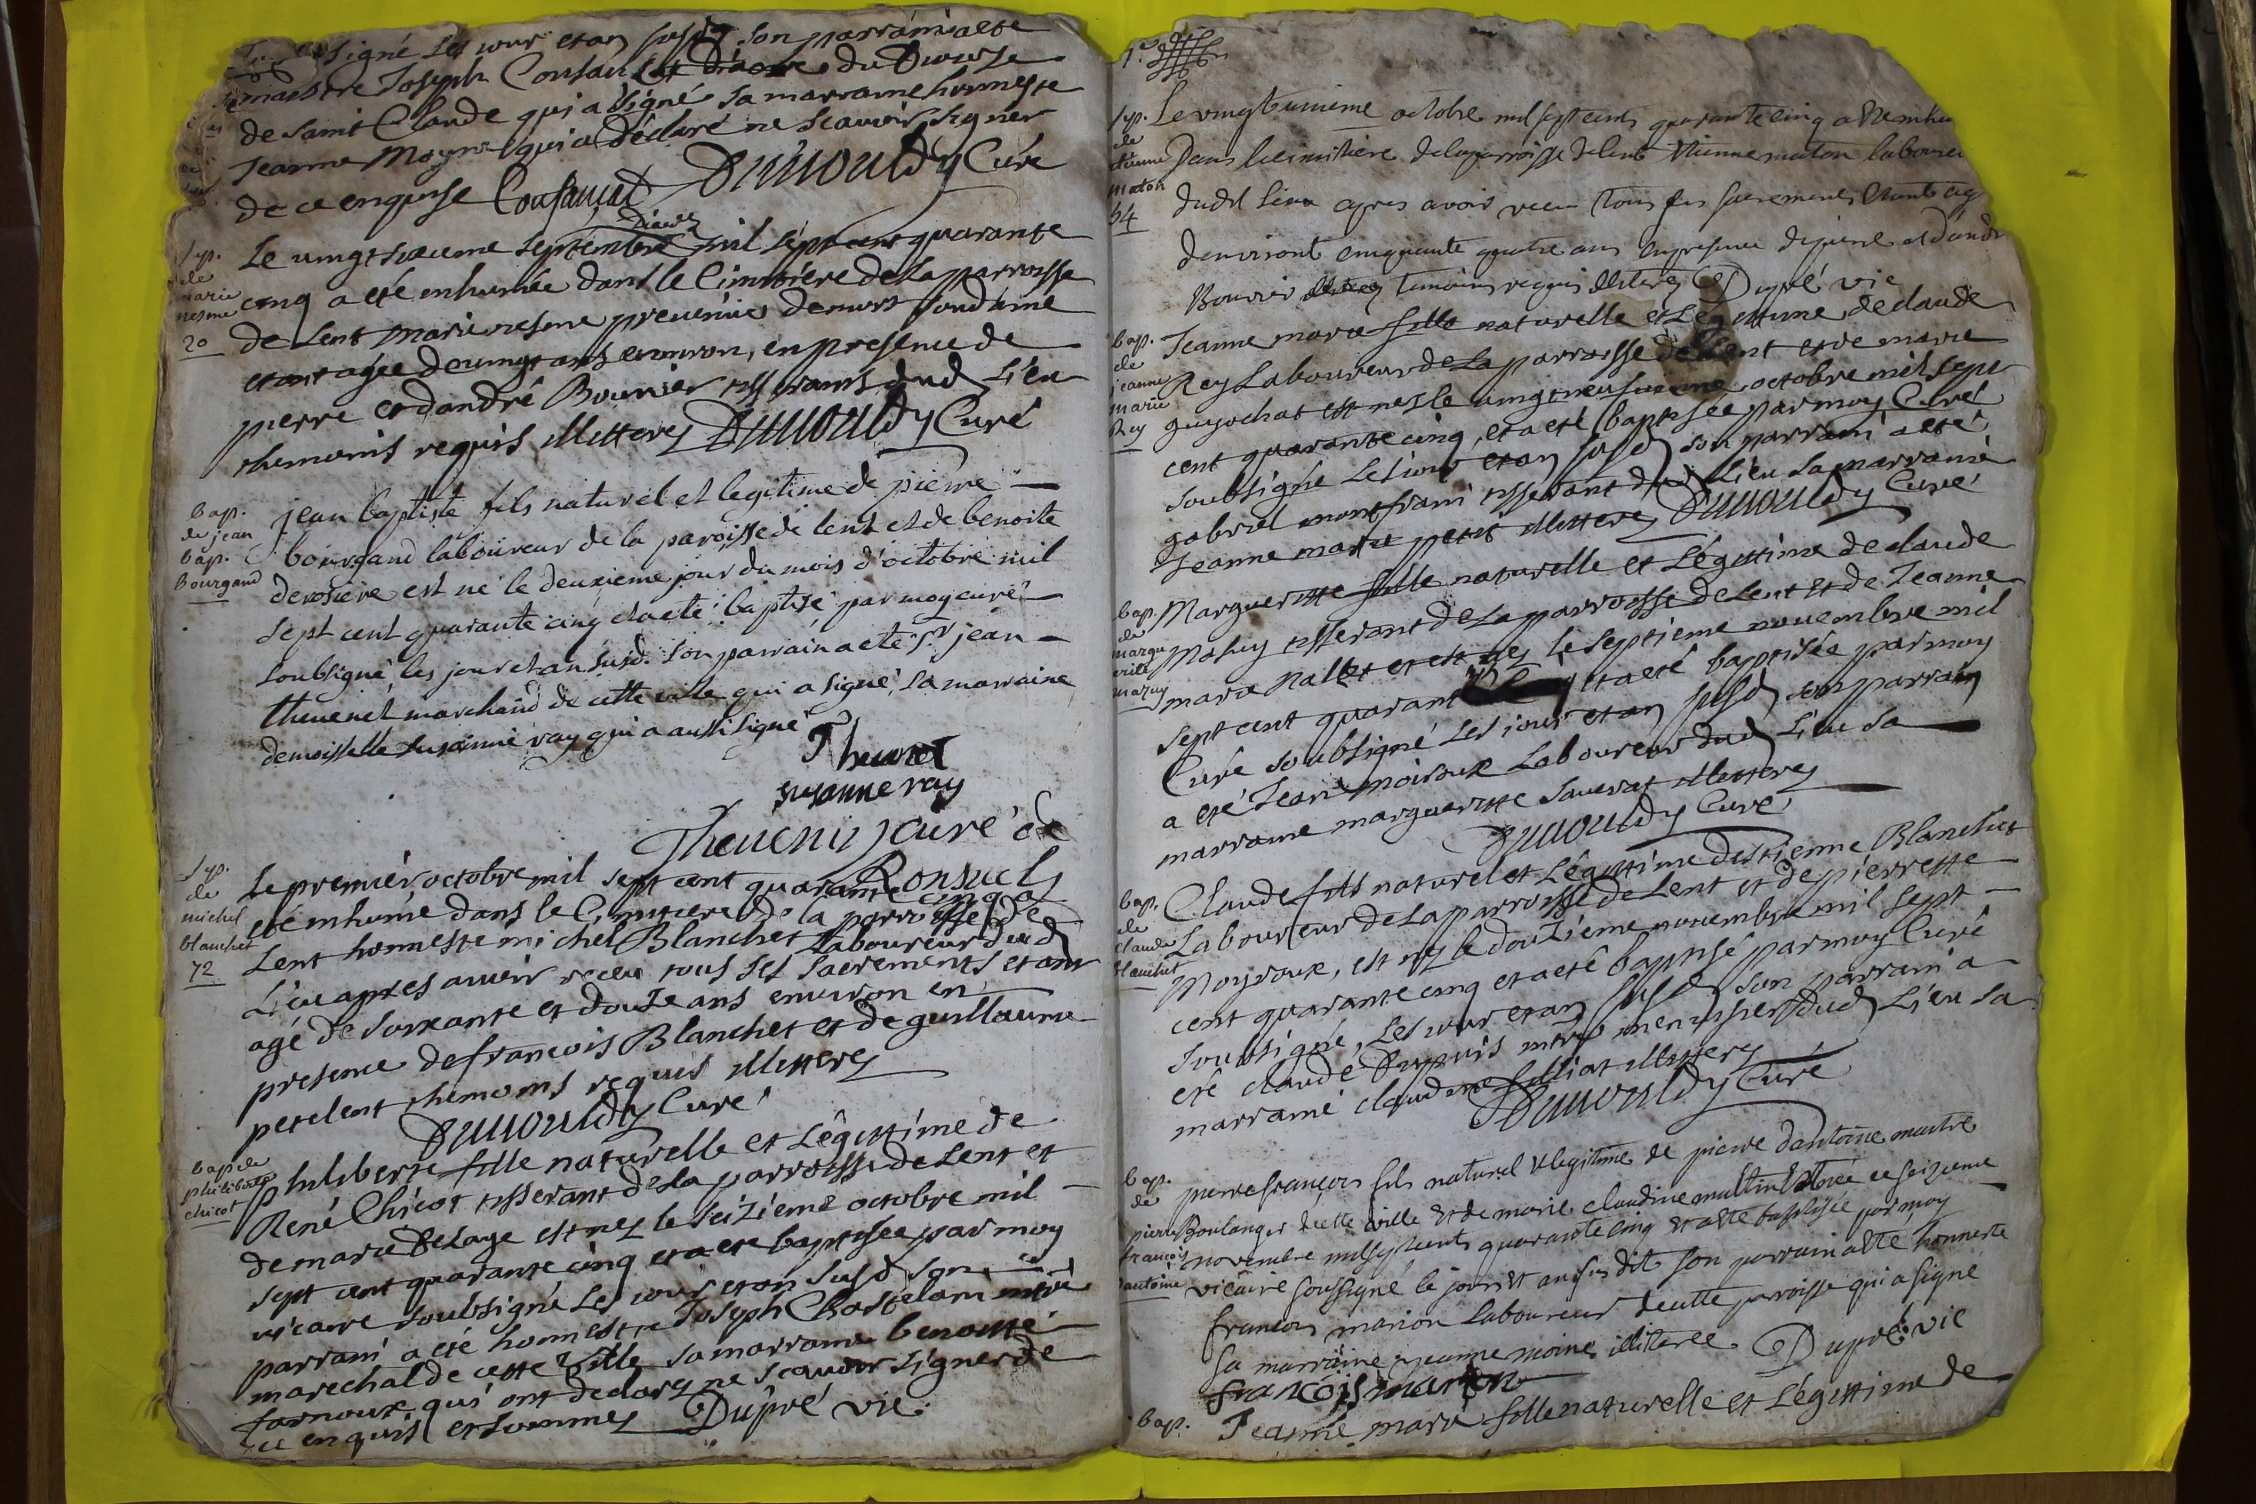 soubsigné les jour et an susd son parrain a eté
maistre Joseph Consancet Diacre du Diocese
de saint Claude qui a signé sa marraine honneste
Jeanne Moyne qui a déclaré ne scavoir signer
de ce enquise Consancet Dunouldy Curé
Diacre
Sep.
de
marie
nesme
20
Le vingt sixieme septembre mil sept cent quarante
cinq a eté inhumée dans le Cimitiere de la parroisse
de Lent marie nesme prevenüe de mort soudaine
etant agée de vingt ans environ, en presence de
pierre et d'andré Bouvier tisserants dud Lieu
themoins requis illitterez Dunouldy Curé
bap.
de jean
bap.
Bourgand
jean baptiste fils naturel et legitime de pierre
bourgand laboureur de la paroisse de lent et de benoite
derosiere est né le deuxieme jour du mois d'octobre mil
sept cent quarante cinq et a eté baptisé par moy curé
soubsigné les jour et an susd. son parrain a eté Sr jean
thevenet marchand de cette ville qui a signé, sa marraine
demoiselle susanne ray qui a aussi signé
Thevenet
susanne ray
Thevenin curé de
Ronsuel
Sep.
de
michel
blanchet
72
Le premier octobre mil sept cent quarante cinq a
eté inhumé dans le Cimitiere de la parroisse de
Lent honneste michel Blanchet Laboureur dud
Lieu apres avoir receu tous ses sacrements etant
agé de soixante et douze ans environ en
presence de francois Blanchet et de guillaume
perelent themoins requis illitterez
Dunouldy Curé
bap de
philiberte
chicot
philiberte fille naturelle et Légittime de
René Chicot tisserant de la parroisse de Lent et
de marie Delaye est nez le seizieme octobre mil
sept cent quarante cinq et a eté baptisée par moy
vicaire soubsigné les jour et an susd son
parrain a eté honneste Joseph Chastelain mtre
marechal de cette ville sa marraine benoitte
farnoux qui ont declarez ne scavoir signer de
ce enquis et sommez Dupré vic.
Sep.
de
etienne
maton
54
Le vingtunieme octobre mil sept cents quarante cinq a eté inhu
dans le cimitiere de la parroisse de lent etienne maton laboureu
dudt lieu apres avoir receu tous ses sacrements etant ag
d'environt cinquante quatre ans en presence de pierre et d'andr
Bouvier temoins requis illiterez Dupré vic
bap.
de
jeanne
marie
Rey
Jeanne marie fille naturelle et Légittime de claude
Rey Laboureur de La parroisse de Lent et de marie
guyochat est nez le vingt neufvieme octobre mil sept
cent quarante cinq, et a eté baptisée par moy Curé
soubsigné Les jour et an susd son parrain a eté
gabriel montfrain tisserant dud Lieu sa marraine
Jeanne marie petit illitterez Dunouldy Curé
bap.
de
margu
erite
mazuy
Margueritte fille naturelle et Légittime de claude
Mazuy tisserant de La parroisse de Lent et de Jeanne
marie Nallet et est nez le septieme novembre mil
sept cent quarante cinq et a eté baptisée par moy
Curé soubsigné Les jour et an susd son parrain
a eté Jean moiroux Laboureur dud Lieu sa
marraine margueritte Sauvrat illitterez
Dunouldy Curé
bap.
de
claude
blanchet
Claude fils naturel et Légittime d'estienne Blanchet
Laboureur de La parroisse de Lent et de pierrette
Moyroux, est nez le douzième novembre mil sept
cent quarante cinq et a eté baptisé par moy Curé
soubsigné, Les jour et an susd son parrain a
eté claude Dupuis mtre menusier dud Lieu sa
marraine claudine filliat illitterez
Dunouldy Curé
bap.
de
pierre
françois
dantoine
pierre françois fils naturel et legitime de pierre dantoine maitre
Boulanger de cette ville et de marie claudine multin est née ce seizieme
novembre mil sept cents quarante cinq et a eté baptisée par moy
vicaire soussigné le jour et an sus dit son parrain a eté honneste
francois marion Laboureur de cette paroisse qui a signé
sa marraine jeanne moine illiterée Dupré vic
francois marion
bap.
Jeanne marie fille naturelle et Légittime de